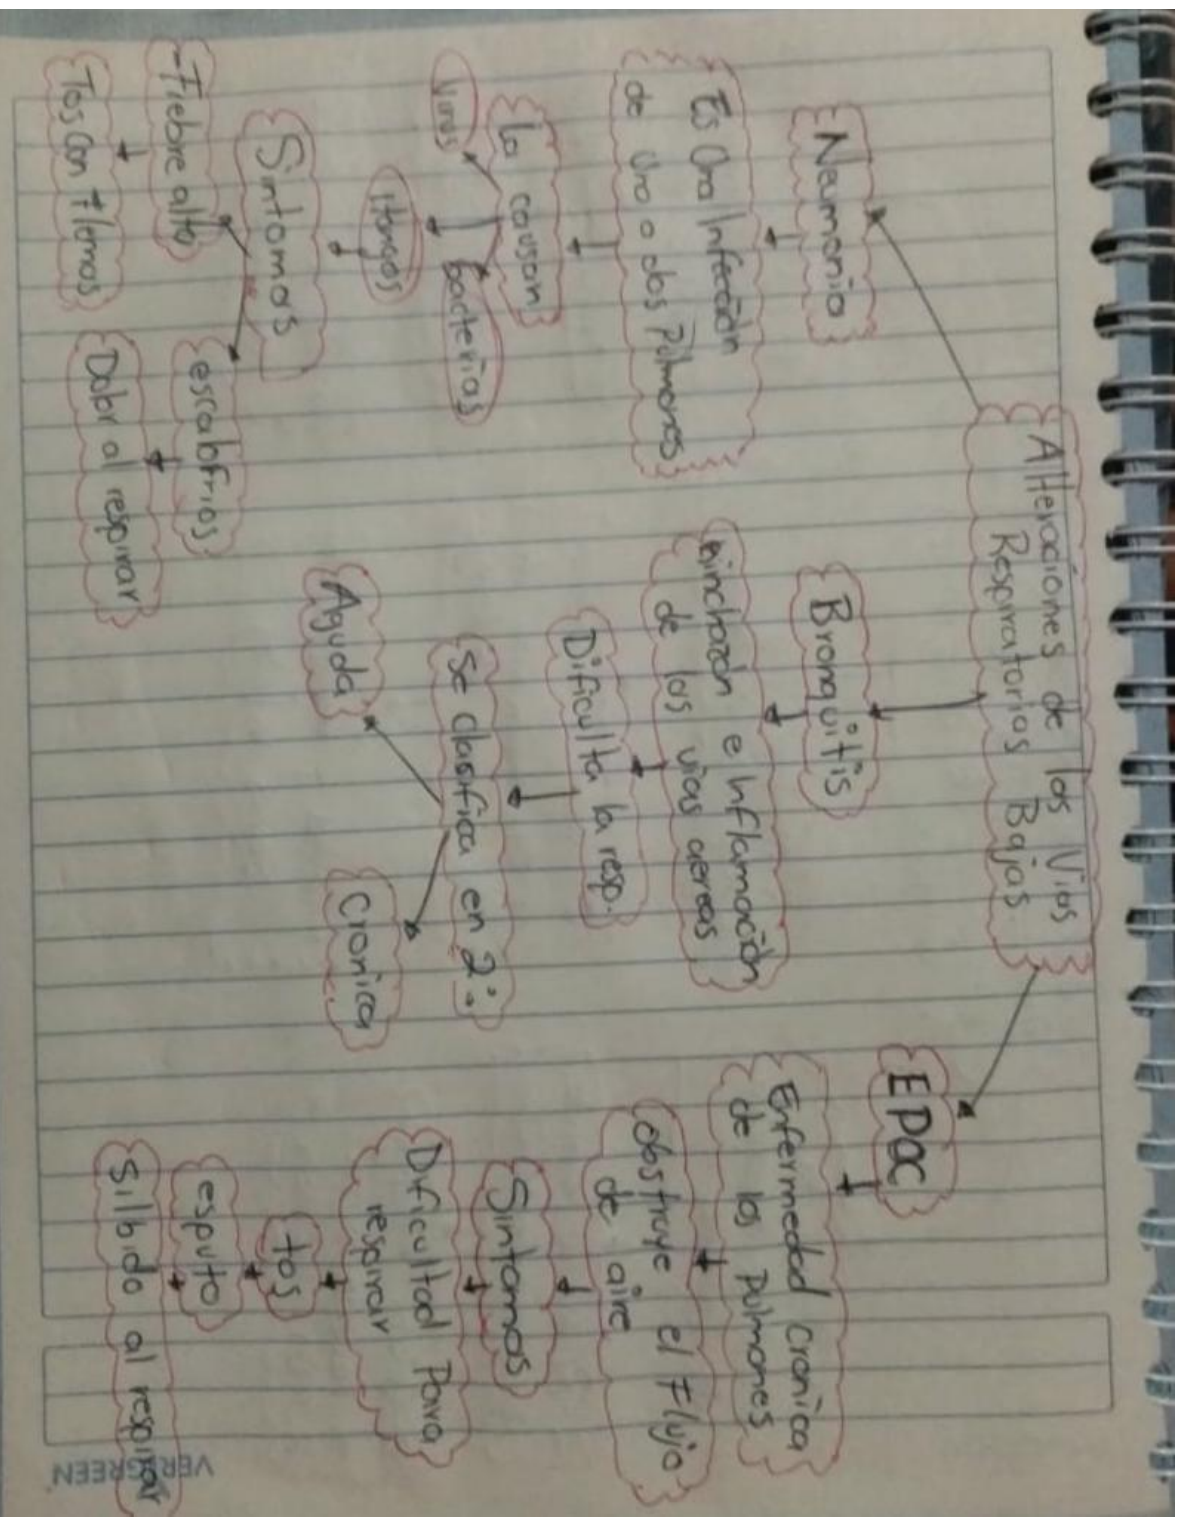 Alteraciones de las Vias
Respiratorias Bajas
Neumonia
Es Una Infección
de Uno o dos Pulmones
La causan
Virus
bacterias
Hongos
Sintomas
-Fiebre alta
Tos con flemas
escalofrios
Dolor al respirar
Bronquitis
Hinchazón e Inflamación
de las vias aereas
Dificulta la resp.
Se clasifica en 2:
Aguda
Cronica
EPOC
Enfermedad Cronica
de los Pulmones
Obstruye el Flujo
de aire
Sintomas
Dificultad Para
respirar
tos
esputo
Silbido al respirar
VERGREEN